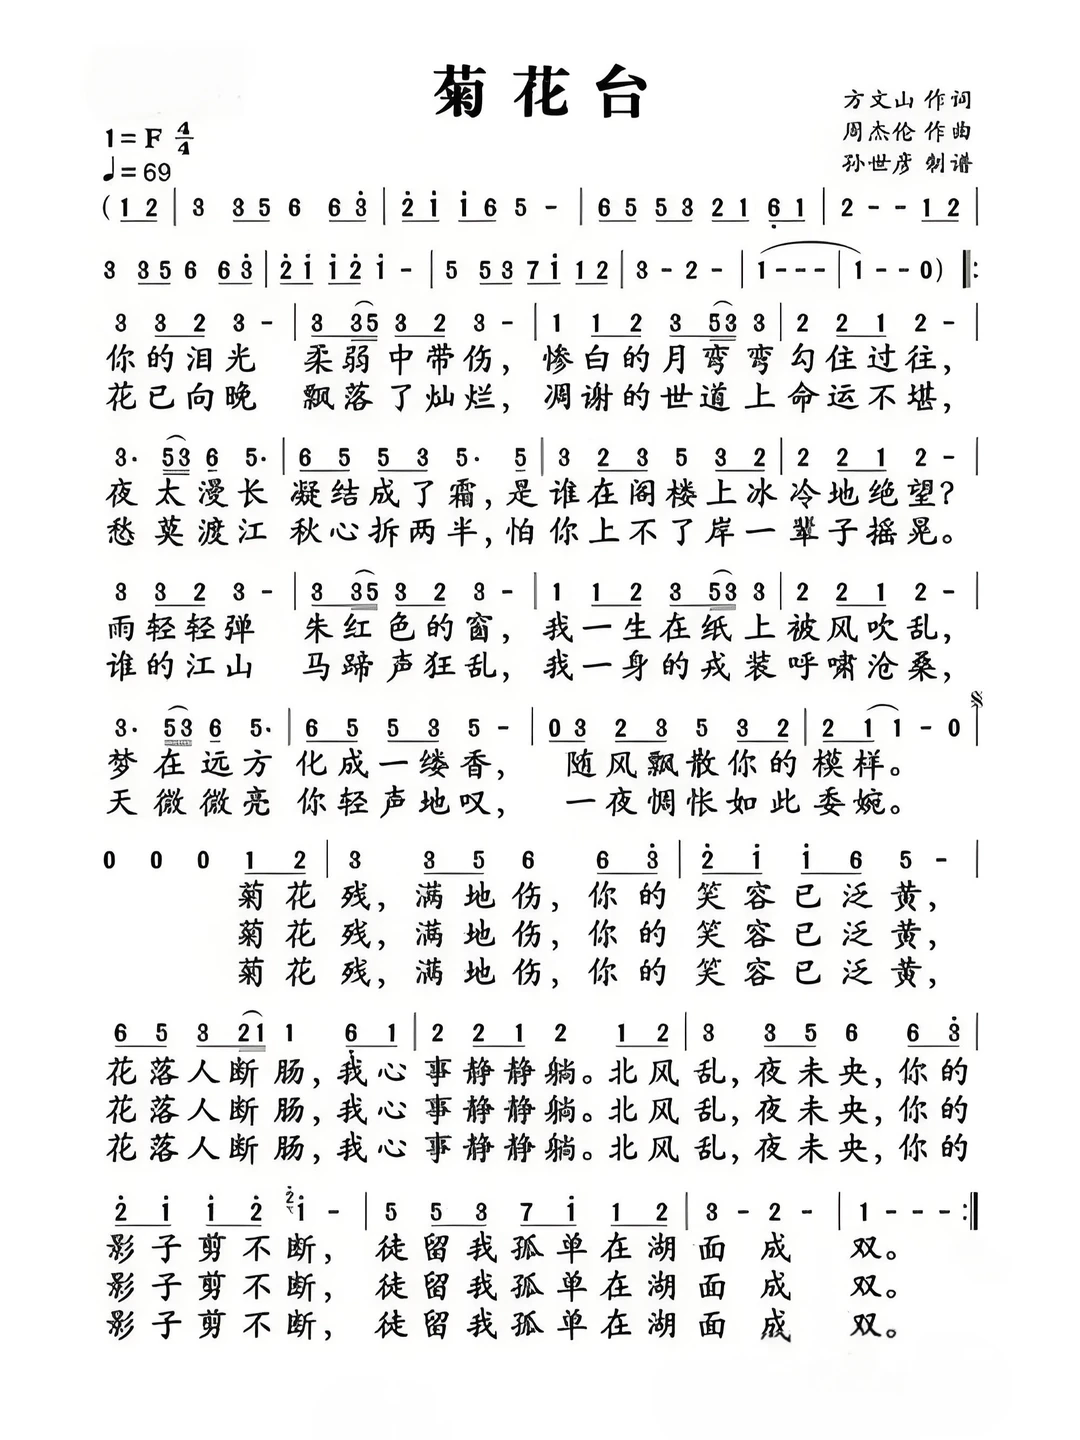 菊花台
方文山 作词
1=F 4/4
周杰伦 作曲
♩=69
孙世彦 制谱
(1 2 | 3 3 5 6 6 3̇ | 2̇ 1̇ 1̇ 6 5 - | 6 5 5 3 2 1 6̣ 1 | 2 - - 1 2 |
3 3 5 6 6 3̇ | 2̇ 1̇ 1̇ 2̇ 1̇ - | 5 5 3 7 1̇ 1 2 | 3 - 2 - | 1 - - - | 1 - - 0) ‖:
3 3 2 3 - | 3 3 5 3 2 3 - | 1 1 2 3 5 3 3 | 2 2 1 2 - |
你的泪光 柔弱中带伤，惨白的月弯弯勾住过往，
花已向晚 飘落了灿烂，凋谢的世道上命运不堪，
3· 5 3 6 5· | 6 5 5 3 5· 5 | 3 2 3 5 3 2 | 2 2 1 2 - |
夜太漫长 凝结成了霜，是谁在阁楼上冰冷地绝望？
愁莫渡江 秋心拆两半，怕你上不了岸一辈子摇晃。
3 3 2 3 - | 3 3 5 3 2 3 - | 1 1 2 3 5 3 3 | 2 2 1 2 - |
雨轻轻弹 朱红色的窗，我一生在纸上被风吹乱，
谁的江山 马蹄声狂乱，我一身的戎装呼啸沧桑，
𝄋
3· 5 3 6 5· | 6 5 5 3 5 - | 0 3 2 3 5 3 2 | 2 1 1 - 0 |
梦在远方 化成一缕香，随风飘散你的模样。
天微微亮 你轻声地叹，一夜惆怅如此委婉。
0 0 0 1 2 | 3 3 5 6 6 3̇ | 2̇ 1̇ 1̇ 6 5 - |
菊花残，满地伤，你的笑容已泛黄，
菊花残，满地伤，你的笑容已泛黄，
菊花残，满地伤，你的笑容已泛黄，
6 5 3 2 1 1 6̣ 1 | 2 2 1 2 1 2 | 3 3 5 6 6 3̇ |
花落人断肠，我心事静静躺。北风乱，夜未央，你的
花落人断肠，我心事静静躺。北风乱，夜未央，你的
花落人断肠，我心事静静躺。北风乱，夜未央，你的
2̇ 1̇ 1̇ 2̇ 2̇ 1̇ - | 5 5 3 7 1̇ 1 2 | 3 - 2 - | 1 - - - :‖
影子剪不断，徒留我孤单在湖面成双。
影子剪不断，徒留我孤单在湖面成双。
影子剪不断，徒留我孤单在湖面成双。